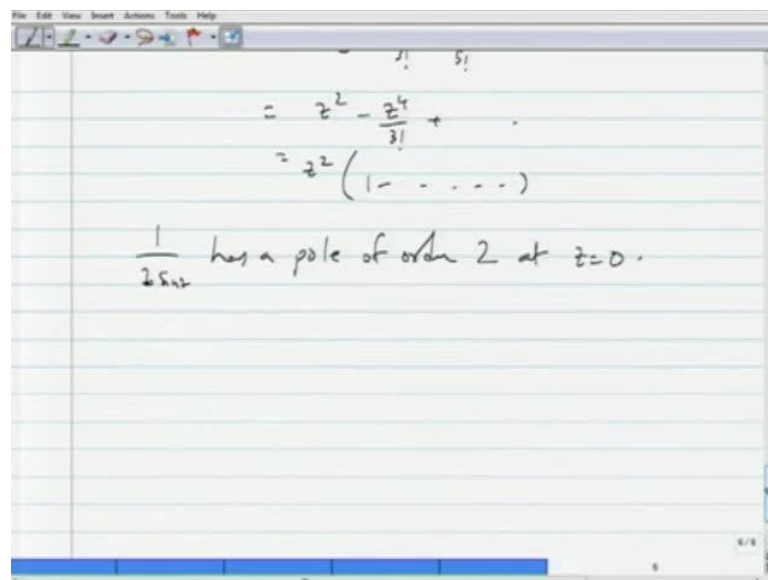 File Edit View Insert Actions Tools Help
= 3! 5!
= z² - z⁴/3! + .
= z² (1 - . . . . .)
1/(z sin z) has a pole of order 2 at z=0.
6/6
6